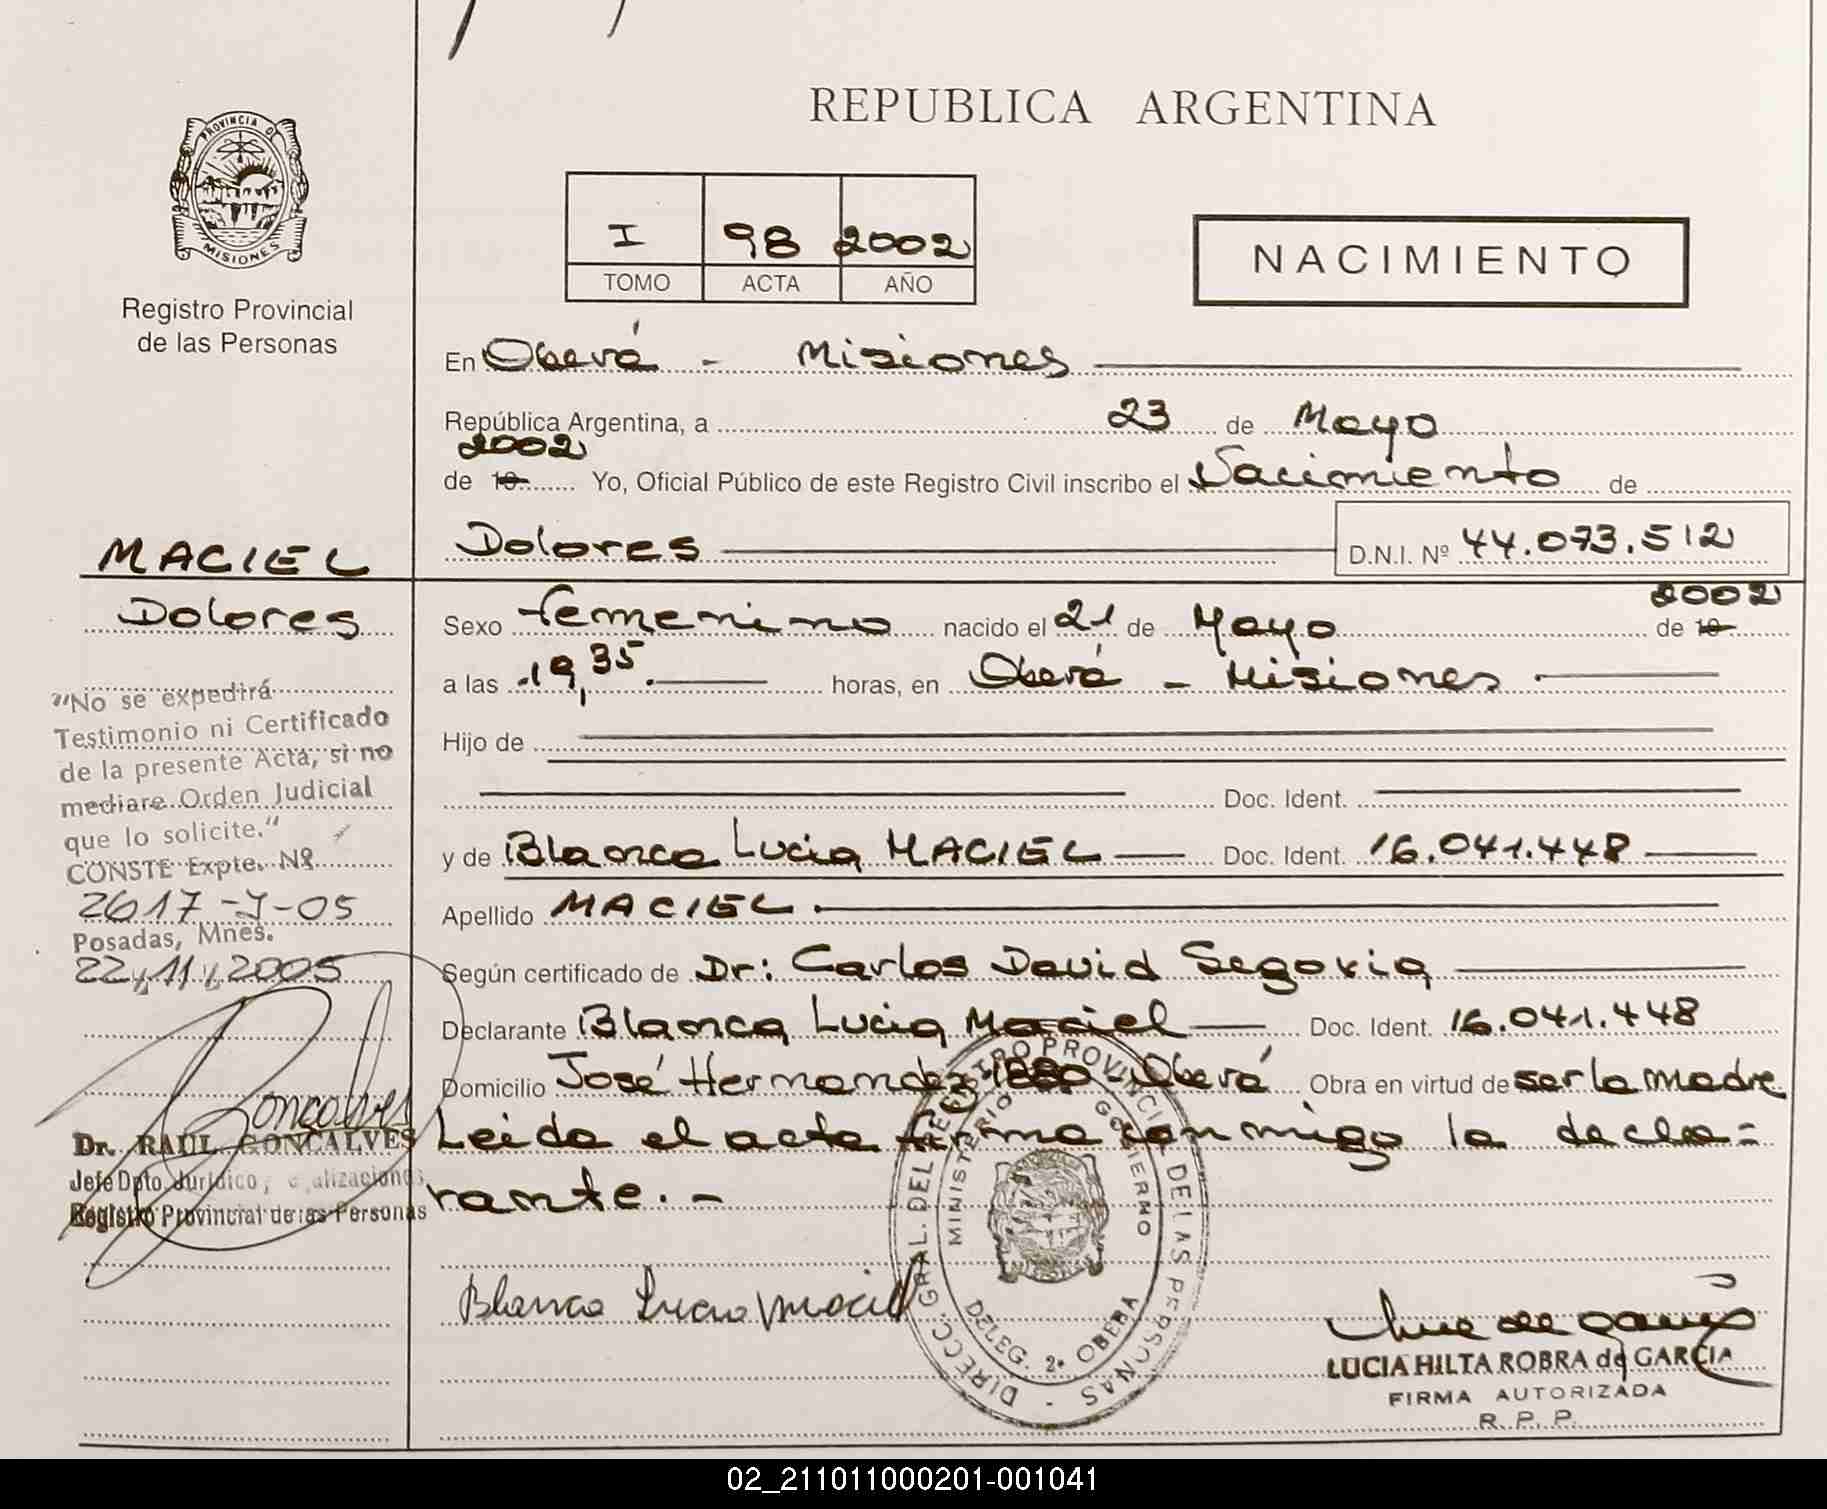 REPUBLICA ARGENTINA
PROVINCIA D
MISIONES
Registro Provincial
de las Personas
I 98 2002
TOMO ACTA AÑO
NACIMIENTO
En Oberá - Misiones
República Argentina, a 23 de Mayo
2002
de 19 Yo, Oficial Público de este Registro Civil inscribo el Nacimiento de
Dolores D.N.I. Nº 44.073.512
MACIEL
Dolores
"No se expedirá
Testimonio ni Certificado
de la presente Acta, si no
mediare Orden Judicial
que lo solicite."
CONSTE Expte. Nº
2617-J-05
Posadas, Mnes.
22, 11, 2005
Goncalves
Dr. RAUL GONCALVES
Jefe Dpto. Jurídico,
Registro Provincial de las Personas
2002
Sexo femenino nacido el 21 de Mayo de 19
a las 19,35 horas, en Oberá - Misiones
Hijo de
Doc. Ident.
y de Blanca Lucia MACIEL Doc. Ident. 16.041.448
Apellido MACIEL
Según certificado de Dr: Carlos David Segovia
Declarante Blanca Lucia Maciel Doc. Ident. 16.041.448
Domicilio José Hernandez 1880 - Oberá Obra en virtud de ser la madre
Leida el acta firma conmigo la decla=
rante.-
Blanca Lucia Maciel
DIRECC. GRAL. DEL REGISTRO PROVINCIAL DE LAS PERSONAS
MINISTERIO GOBIERNO
DELEG. 2ª OBERA
LUCIA HILTA ROBRA de GARCIA
FIRMA AUTORIZADA
R. P. P.
02_211011000201-001041